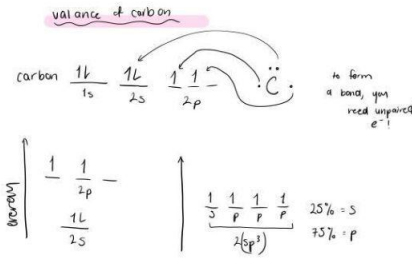 valance of carbon
carbon 1L 1L 1 1 ·C̈·
1s 2s 2p
to form
a bond, you
need unpaired
e⁻!
energy
1
2p
1L
2s
1 1 1 1
s p p p
2(sp³)
25% = s
75% = p